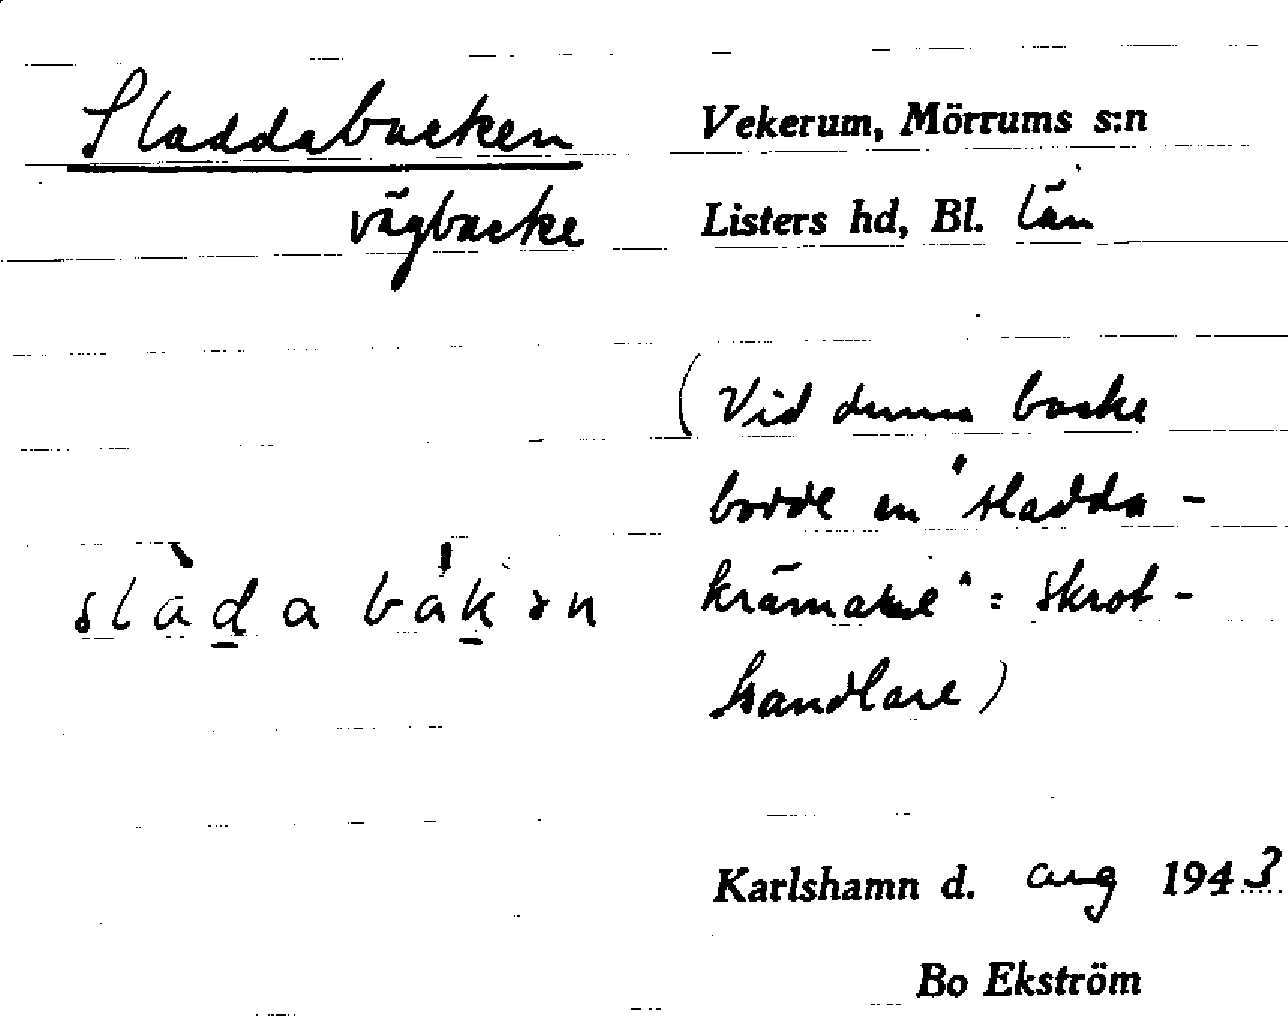 Sladdabacken
vägbacke
Vekerum, Mörrums s:n
Listers hd, Bl. län
(Vid denna backe
bodde en "sladda-
krämare" = skrot-
handlare)
slàd̲a bák̲ən
Karlshamn d. aug 1943
Bo Ekström